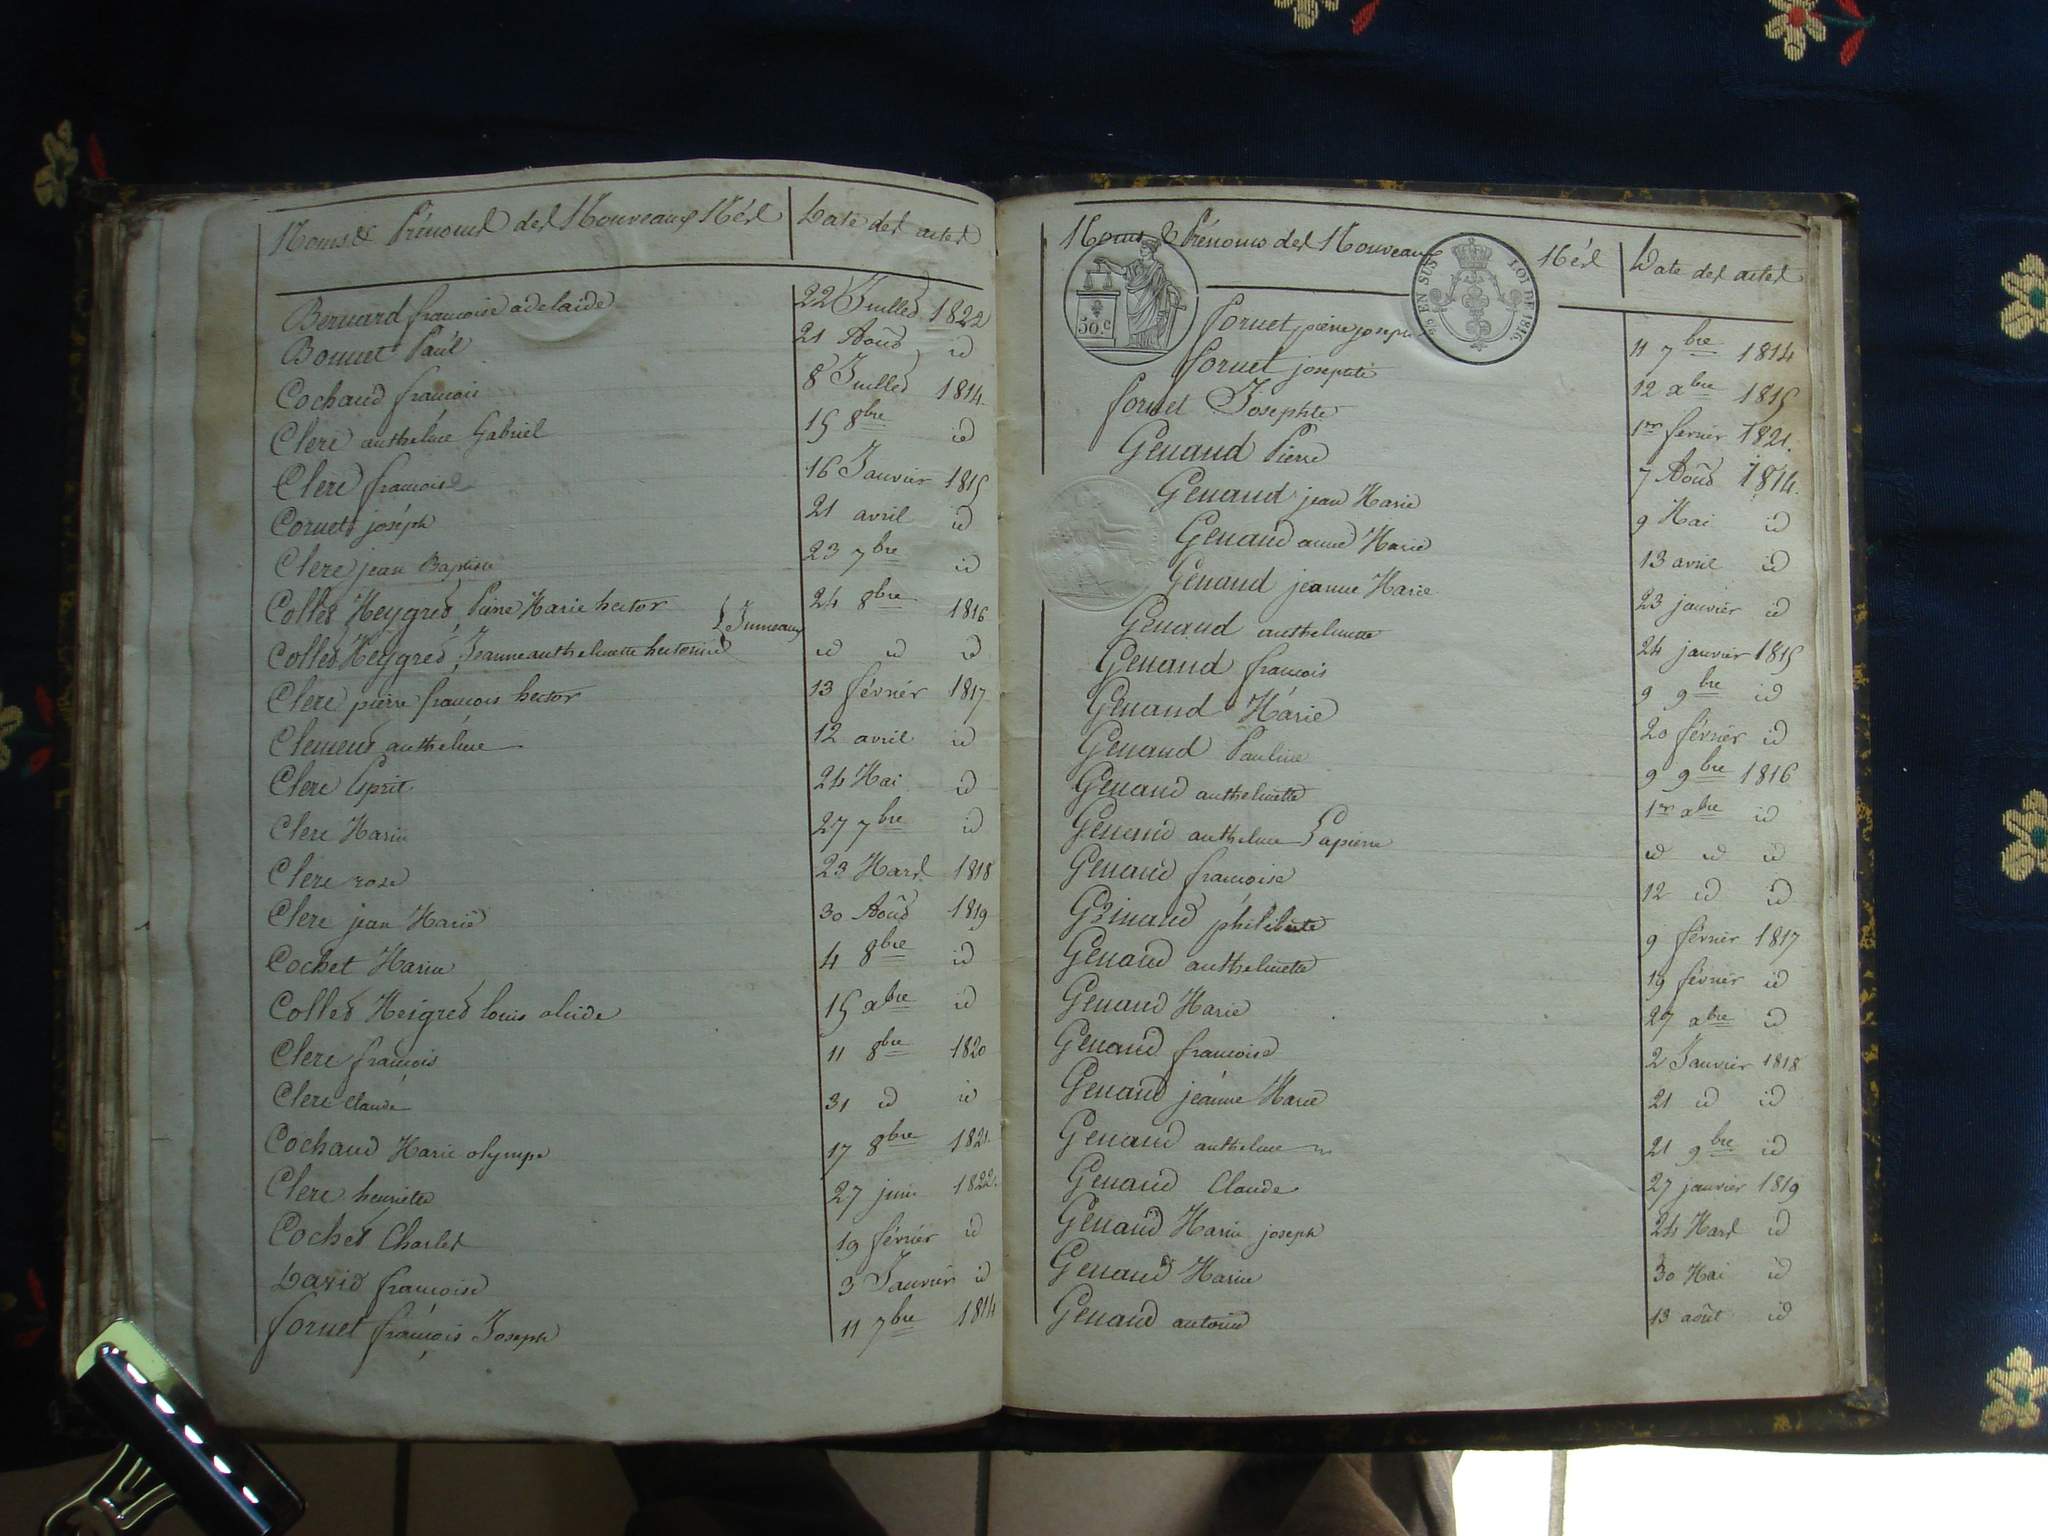 Noms & Prénoms des Nouveaux Nés Date des actes
Bernard francoise adelaide 22 Juillet 1822
Bonnet Paul 21 Août id
Cochand francois 8 Juillet 1814
Clere anthelme Gabriel 15 8bre id
Clere francoise 16 Janvier 1815
Cornet joséph 21 avril id
Clere jean Baptiste 23 7bre id
Collet Meygret, Pierre Marie hector 24 8bre 1816
Jumeaux
Collet Meygret, Jeanne anthelmette hectorine id id id
Clere pierre francois hector 13 févriér 1817
Clement anthelme 12 avril id
Clere Esprit 24 Mai id
Clere Marie 27 7bre id
Clere rose 23 Mars 1818
Clere jean Marie 30 Août 1819
Cochet Marie 4 8bre id
Collet Meigret louis alcide 15 xbre id
Clere francois 11 8bre 1820
Clere Claude 31 id id
Cochand Marie olympe 17 8bre 1821
Clere henriette 27 juin 1822
Cochet Charles 19 févriér id
David francoise 3 Janvier id
fornet francois Joseph 11 7bre 1814
Noms & Prénoms des Nouveaux Nés Date des actes
50.c
EN SUS LOI DE 1816.
fornet pierre joseph 11 7bre 1814
fornet josephte 12 xbre 1815
fornet Josephte 1er fevrier 1821
Genand Pierre 7 Août 1814
Genand jean Marie 9 Mai id
Genand anne Marie 13 avril id
Genand jeanne Marie 23 janviér id
Genand anthelmette 24 janvier 1815
Genand francois 9 9bre id
Genand Marie 20 févriér id
Genand Pauline 9 9bre 1816
Genand anthelmette 1er xbre id
Genand anthelme Lapierre id id id
Genand francoise 12 id id
Génand philiberte 9 févriér 1817
Genand anthelmette 19 févriér id
Genand Marie 27 xbre id
Genand francoise 2 Janvier 1818
Genand jeanne Marie 21 id id
Genand anthelme 21 9bre id
Genand Claude 27 janvier 1819
Genand Marie joseph 24 Mars id
Genand Marie 30 Mai id
Genand antoine 13 août id